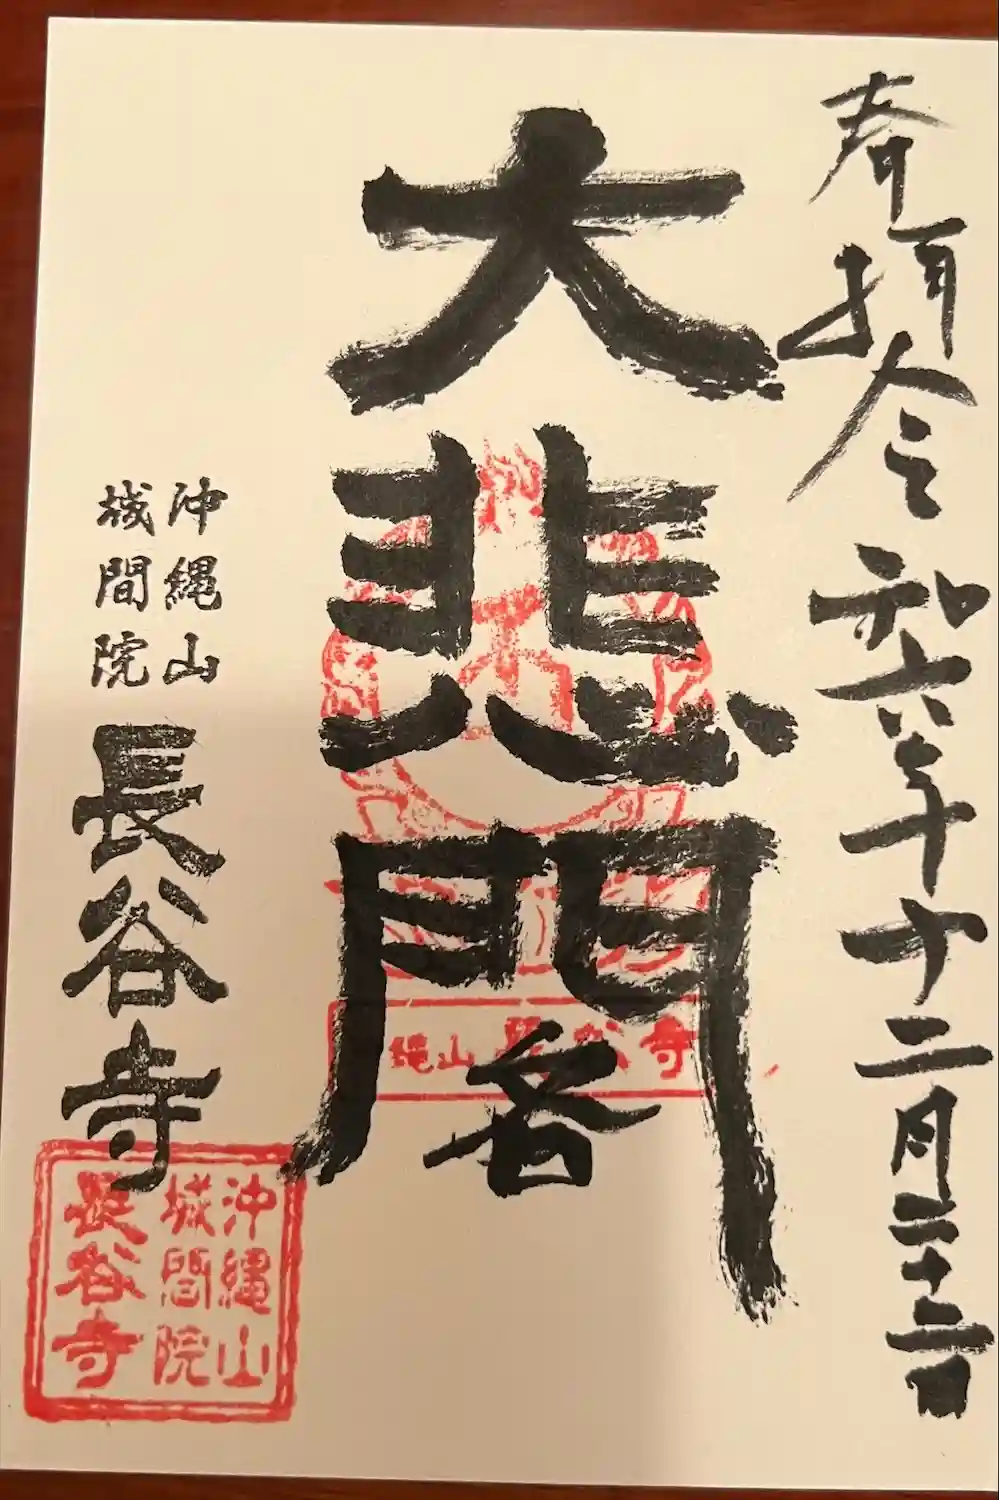 奉拝 令和六年十二月二十二日
大悲閣
沖縄山
城間院
長谷寺
縄山長谷寺
沖縄山
城間院
長谷寺